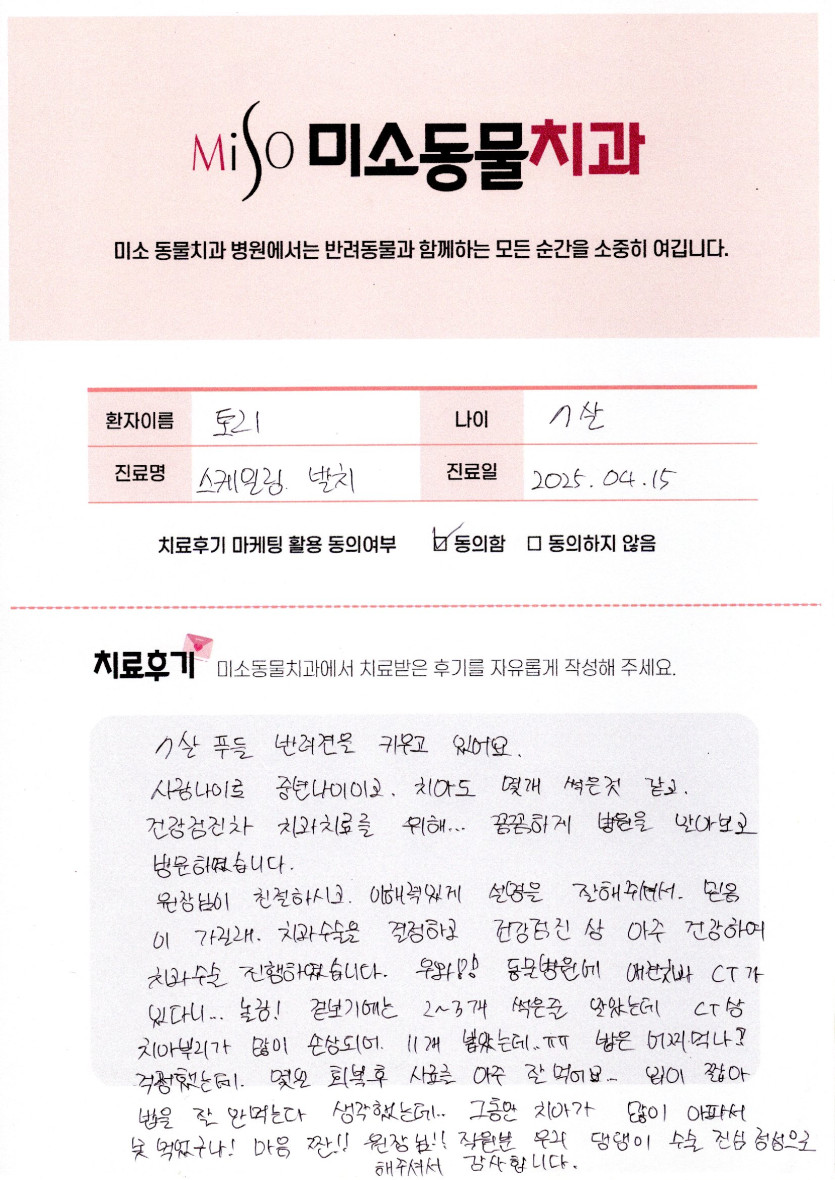 MiSO 미소동물치과
미소 동물치과 병원에서는 반려동물과 함께하는 모든 순간을 소중히 여깁니다.
환자이름 토리 나이 7살
진료명 스케일링. 발치 진료일 2025.04.15
치료후기 마케팅 활용 동의여부 ☑ 동의함 ☐ 동의하지 않음
치료후기 미소동물치과에서 치료받은 후기를 자유롭게 작성해 주세요.
7살 푸들 반려견을 키우고 있어요.
사람나이로 중년나이이고. 치아도 몇개 썩은것 같고.
건강검진차 치과치료를 위해... 꼼꼼하게 병원을 알아보고
방문하였습니다.
원장님이 친절하시고. 이해력있게 설명을 잘해주셔서. 믿음
이 가길래. 치과수술을 결정하고 건강검진 상 아주 건강하여
치과수술 진행하였습니다. 우와!! 동물병원에 CT가
있다니... 놀람! 겉보기에는 2~3개 썩은줄 알았는데 CT상
치아뿌리가 많이 손상되어. 11개 뽑았는데..ㅠㅠ 밥은 어찌먹나?
걱정했는데. 몇일 회복후 사료를 아주 잘 먹어요... 입이 짧아
밥을 잘 안먹는다 생각했는데.. 그동안 치아가 많이 아파서
못 먹었구나! 마음 짠!! 원장님!! 직원분 우리 댕댕이 수술 진심 정성으로
해주셔서 감사합니다.